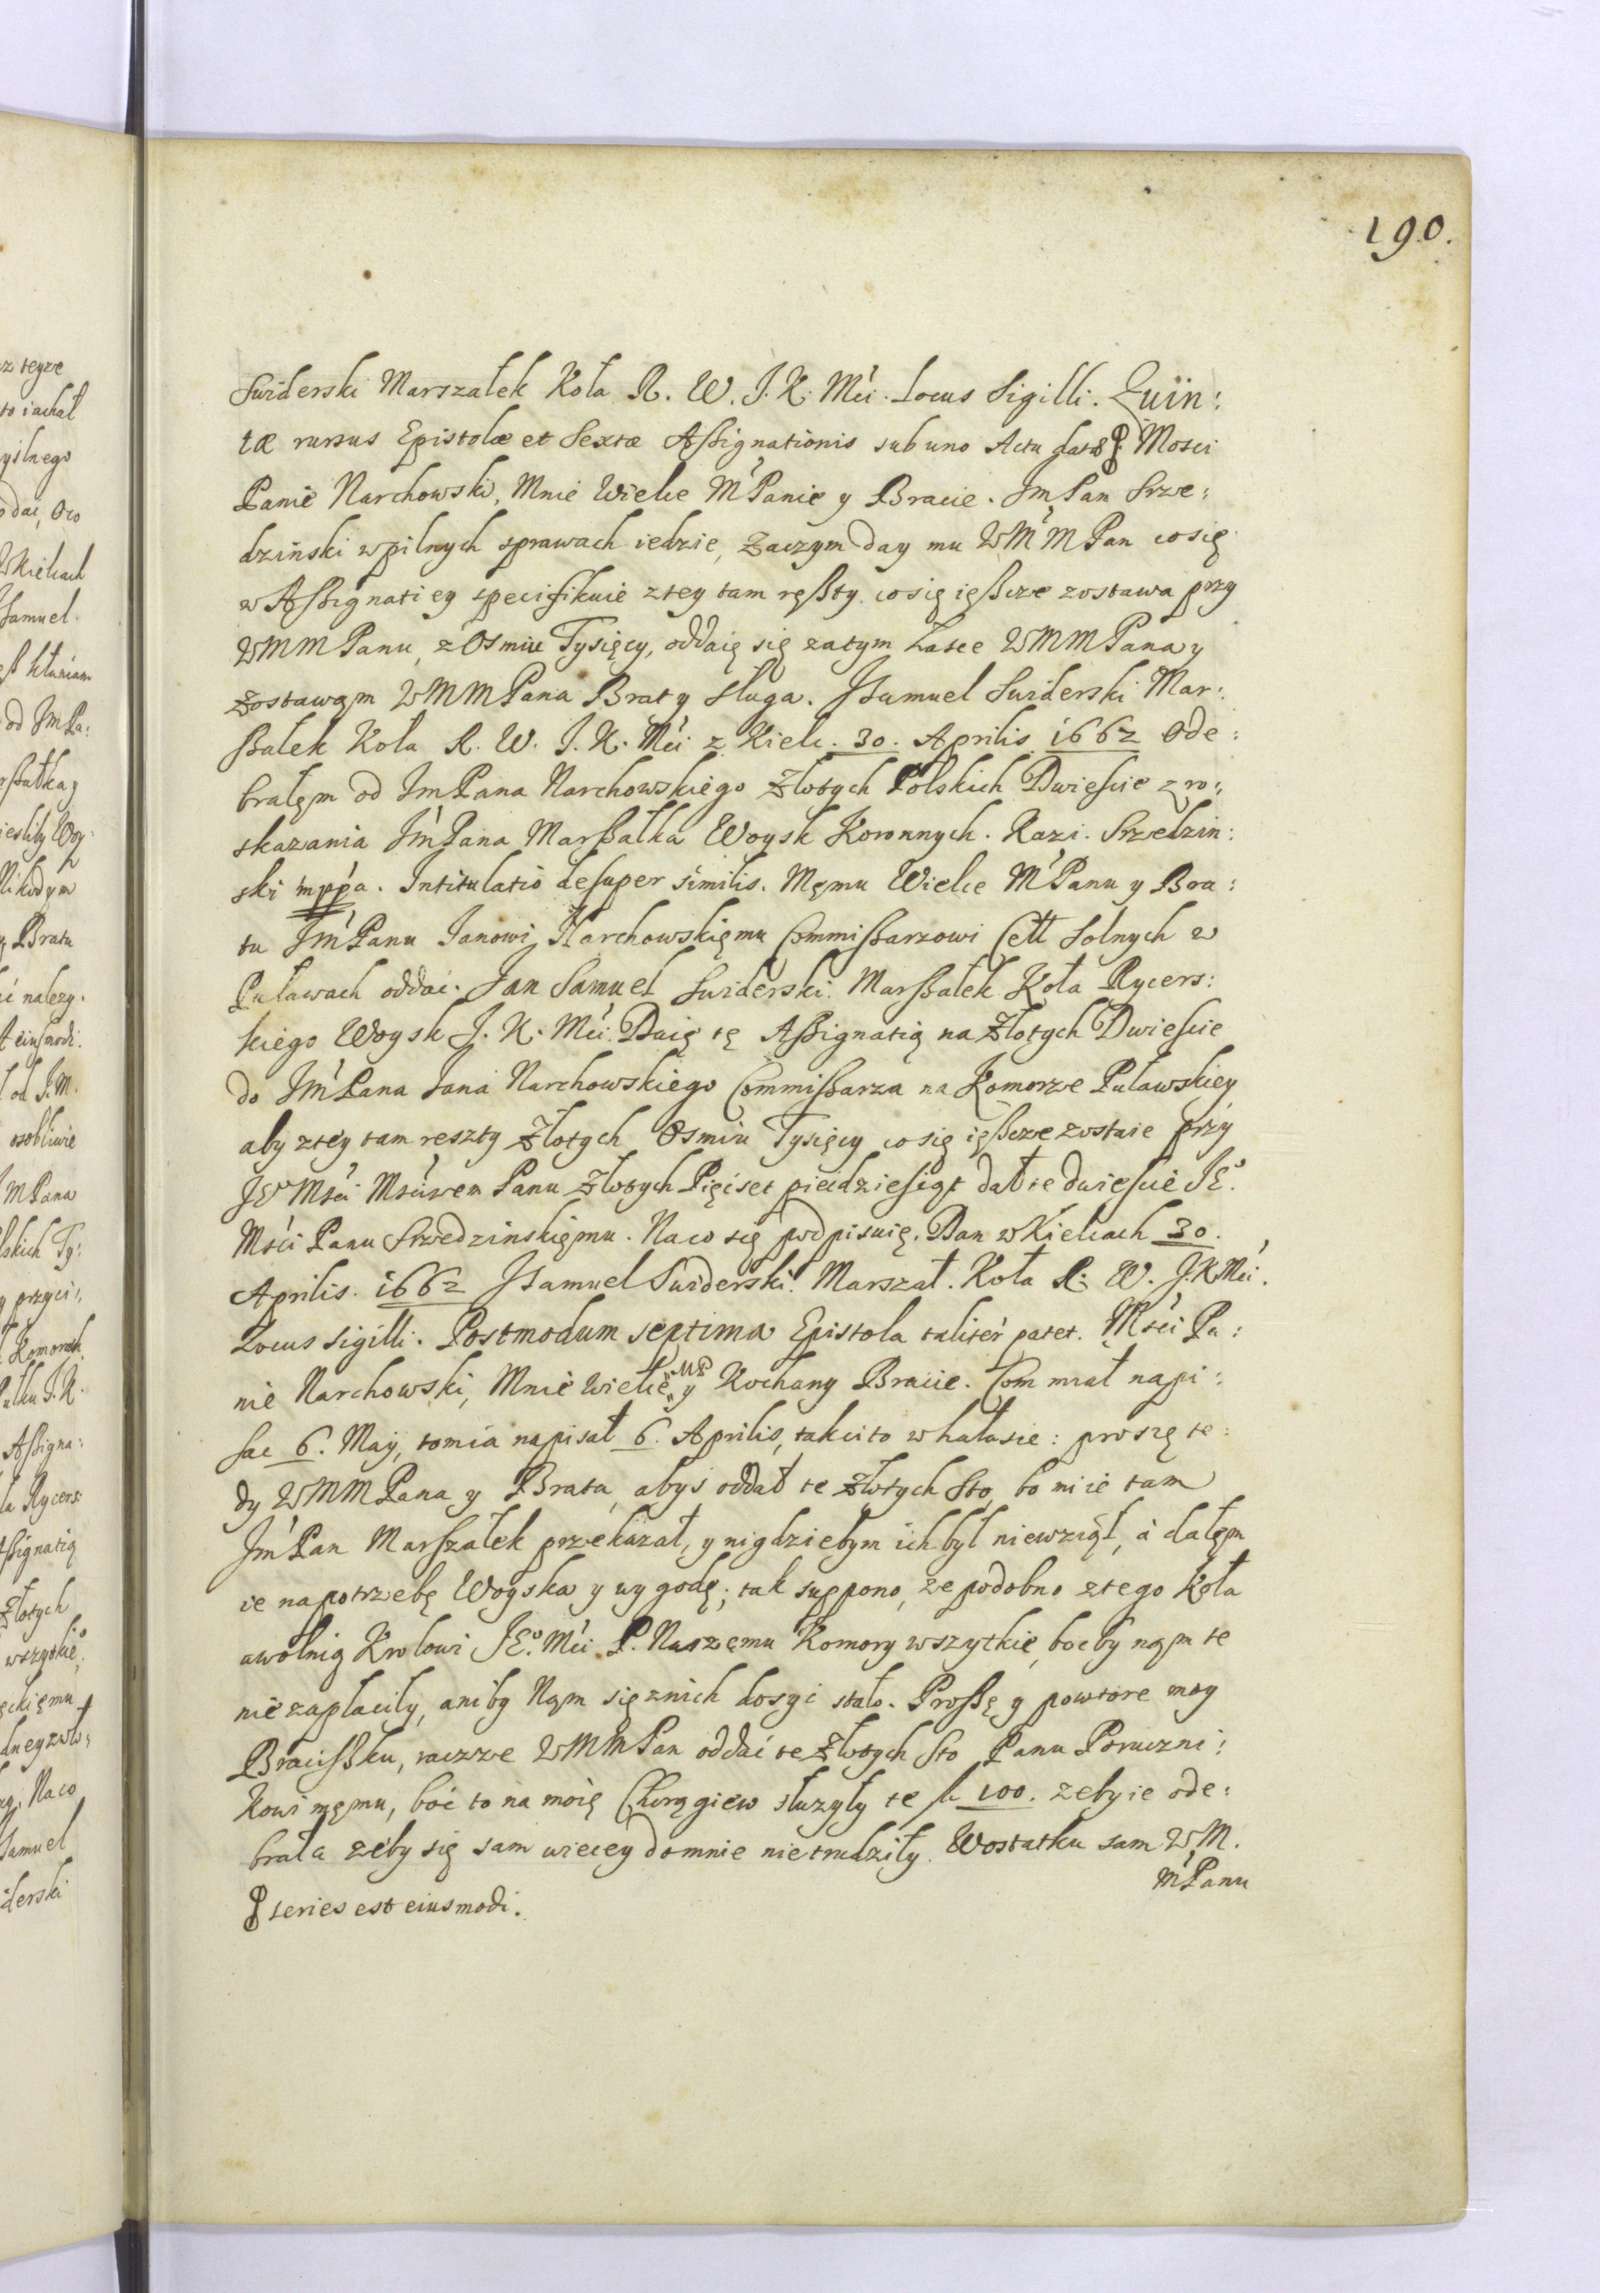 190.
Swiderski Marszałek Koła R. W. J. K. Mći. Locus Sigilli. Quin:
tæ rursus Epistolæ et Sextæ Aßignationis sub uno Actu datæ ꝑ Mosci
Panie Narchowski, Mnie Wielce M Panie y Bracie. Jm Pan Srze:
dzinski w pilnych sprawach iedzie, Zaczym day mu WM M Pan co się
w Aßignatiey specifikuie z tey tam reßty co się ießcze zostawa przy
WMM Panu, z Osmiu Tysięcy, oddaię się zatym Łasce WMM Pana y
Zostawam WMM Pana Brat y sługa. JSamuel Swiderski Mar:
ßałek Koła R. W. J. K. Mći z Kielc. 30. Aprilis 1662 Ode:
brałęm od Jm Pana Narchowskiego Złotych Polskich Dwieście z ro:
skazania Jm Pana Marßałka Woysk Koronnych. Kazi. Srzedzin:
ski mppa. Intitulatio desuper similis. Męmu Wielce M Panu y Bra:
tu Jm Panu Janowi Narchowskięmu Commißarzowi Cełł Solnych w
Puławach oddać. Jan Samuel Swiderski Marßałek Koła Rycers:
kiego Woysk J. K. Mći. Daię tę Aßignatią na Złotych Dwieście
do Jm Pana Jana Narchowskiego Commißarza na Komorze Puławskiey
aby z tey tam reszty Złotych Osmiu Tysięcy co się ießcze zostaie przy
JE Mści Mściwem Panu Złotych Pięćset piećdziesiąt dał te dwieście JE°
Mści Panu Srzedzinskięmu. Na co się podpisuię. Dan w Kielcach 30.
Aprilis. 1662 JSamuel Swiderski. Marszał. Koła R. W. J.K Mći.
Locus sigilli. Postmodum septima Epistola taliter patet. Mści Pa:
nie Narchowski, Mnie wielce MP y Kochany Bracie. Com miał napi:
sac 6. May, tomia napisał 6. Aprilis, takci to w hałasie: proszę te:
dy WMM Pana y Brata, abyś oddał te Złotych Sto, bo mi ie tam
Jm Pan Marszałek przekazał, y nigdziebym ich był niewziął, à dałęm
ie na potrzebę Woyska y wygodę; tak suppono, ze podobno z tego Koła
uwolnią Krolowi JE° Mći P. Naszęmu Komory wszytkie, boćby nąm te
nie zapłaciły, ani by Nąm się z nich dosyć stało. Proßę y powtore moy
Bracißku, raczze WMM Pan oddać te Złotych Sto Panu Poruczni:
kowi męmu, boć to na moię Chorągiew słuzyły te fl 100. zeby ie ode:
brała zeby się sam wiecey do mnie nie trudziły. Wostatku sam WM.
M Panu
ꝑ series est eiusmodi.